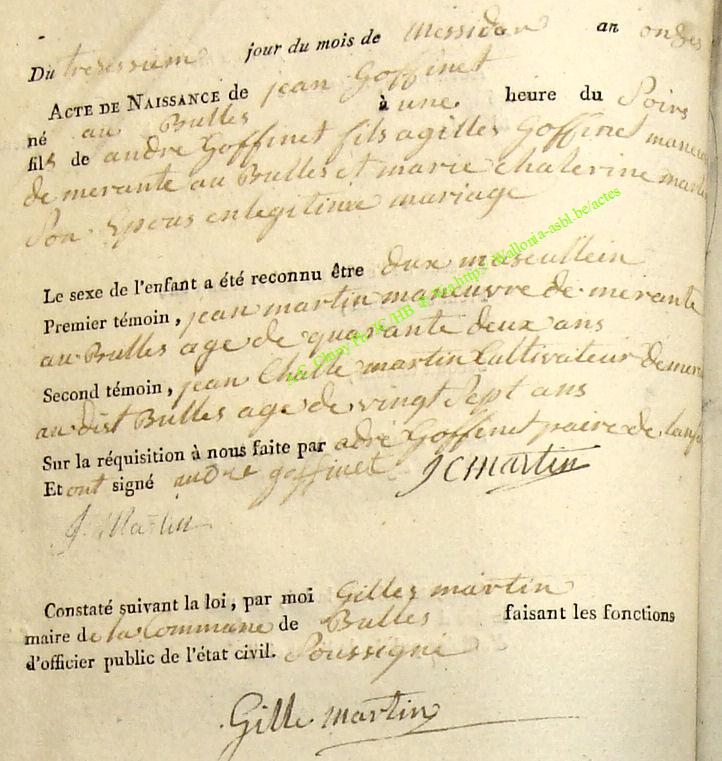 Du tresessiem jour du mois de Messidor an onzes
ACTE DE NAISSANCE de jean Goffinet
né au Bulles à une heure du Soire
fils de andré Goffinet fils agilles Goffinet maneu
de merante au Bulles et marie chaterine marti
Son Epous enlegitime mariage
Le sexe de l'enfant a été reconnu être dux masculiein
Premier témoin, jean martin maneuvre de merante
au Bulles age de quarante deux ans
Second témoin, jean Charle martin Cultivateur demera
au dist Bulles age de vingt Sept ans
Sur la réquisition à nous faite par adré Goffinet paire de lanf
Et ont signé andre goffinet J C martin
J. Martin
Constaté suivant la loi, par moi Gilles martin
maire de la Commune de Bulles faisant les fonctions
d'officier public de l'état civil. Soussigné
Gille martin